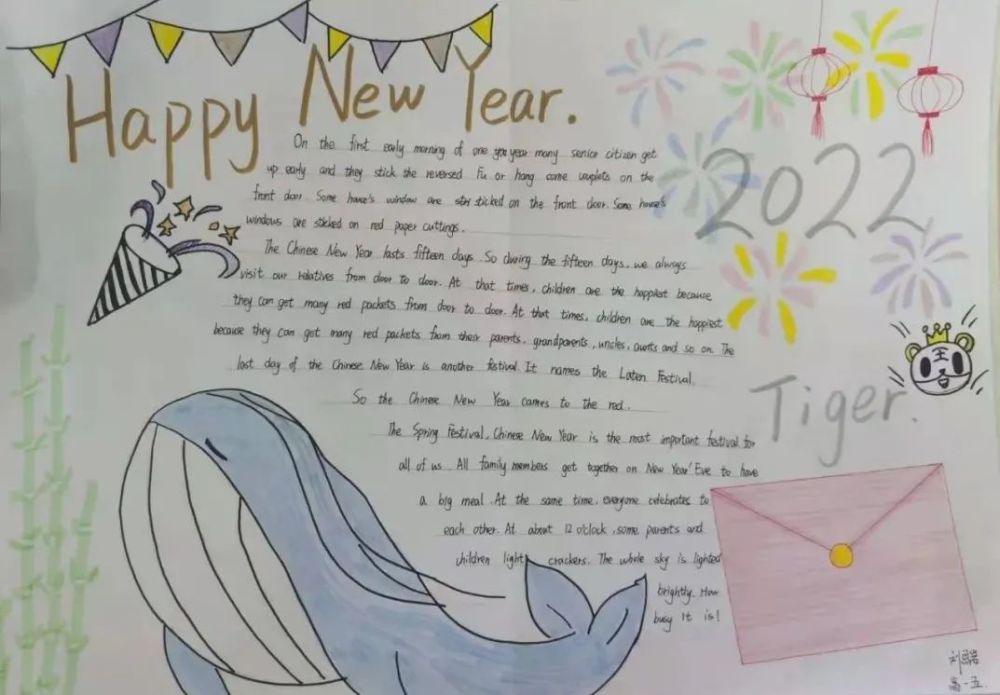 Happy New Year.
On the first early morning of one year many senior citizen get
up early and they stick the reversed Fu or hang some couplets on the
front door. Some house's window are sticked on the front door. Some house's
windows are sticked on red paper cuttings.
The Chinese New Year lasts fifteen days. So during the fifteen days, we always
visit our relatives from door to door. At that times, children are the happiest because
they can get many red packets from door to door. At that times, children are the happiest
because they can get many red packets from their parents, grandparents, uncles, aunts and so on. The
last day of the Chinese New Year is another festival. It names the Laten Festival.
So the Chinese New Year cames to the red.
The Spring Festival, Chinese New Year is the most important festival for
all of us. All family members get together on New Year' Eve to have
a big meal. At the same time, everyone celebrates to
each other. At about 12 o'clock, some parents and
children light crackers. The whole sky is lighted
brightly. How
busy It is!
2022
王
Tiger.
高一五.